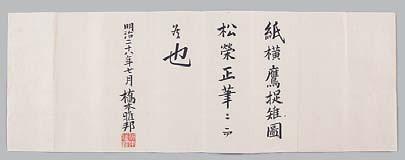 紙橫鷹捉雉圖
松榮正筆
也
明治二十八年七月 橋本雅邦